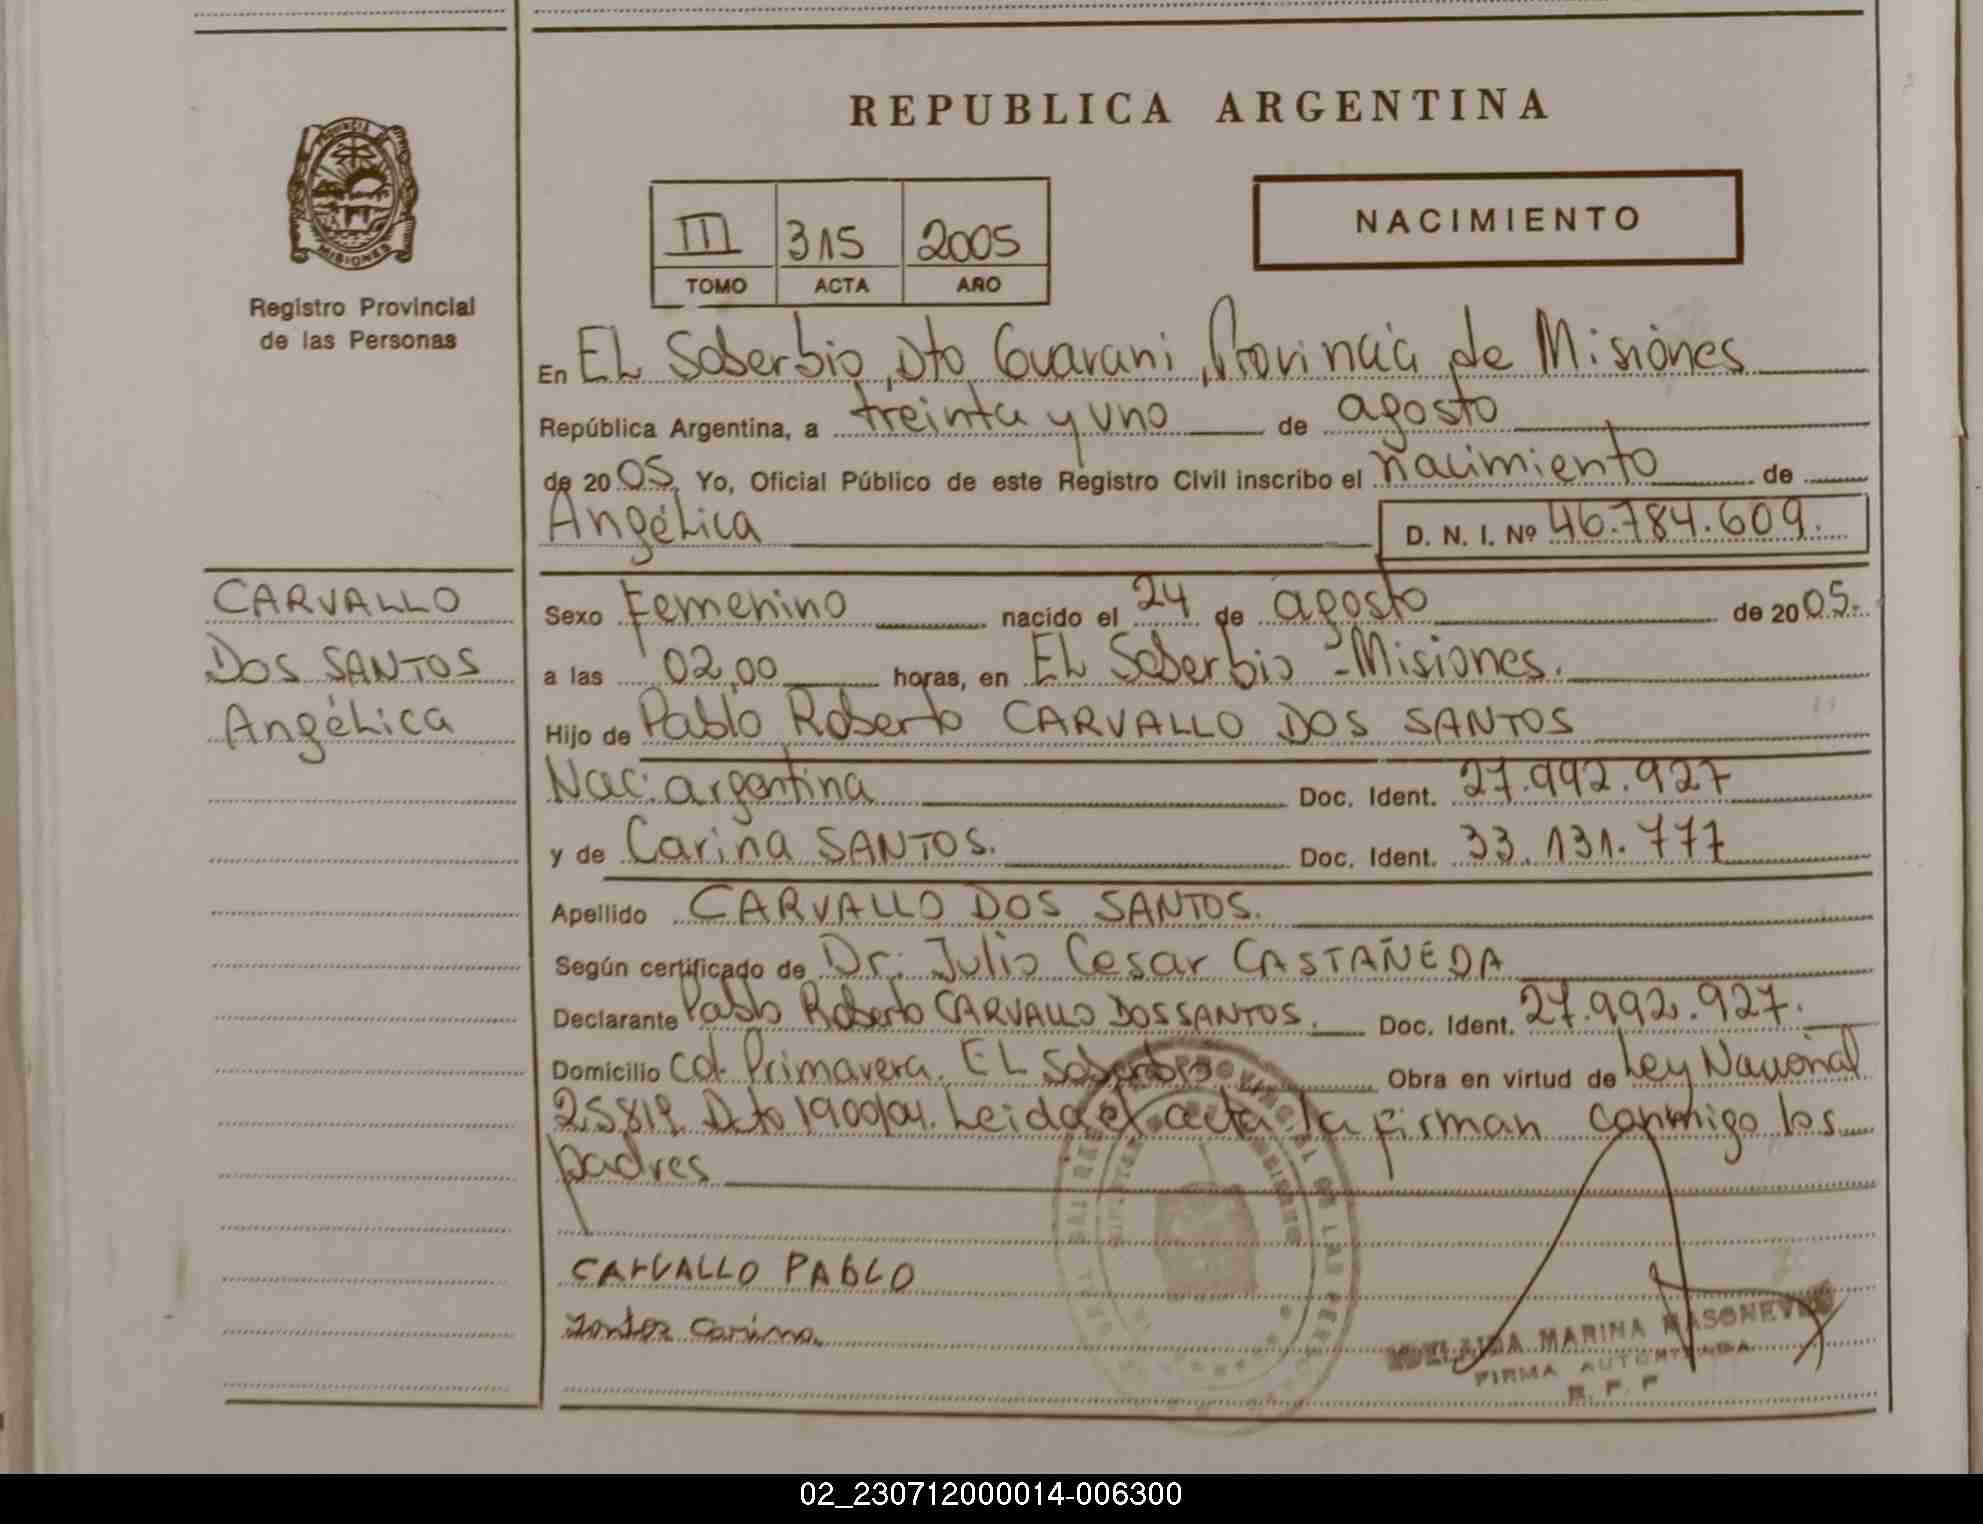 REPUBLICA ARGENTINA
PROVINCIA DE
MISIONES
Registro Provincial
de las Personas
III 315 2005
TOMO ACTA AÑO
NACIMIENTO
En EL Soberbio, Dto Guarani, Provincia de Misiones
República Argentina, a treinta y uno de agosto
de 2005, Yo, Oficial Público de este Registro Civil inscribo el nacimiento de
Angélica D. N. I. Nº 46.784.609.
CARVALLO
DOS SANTOS
Angélica
Sexo Femenino nacido el 24 de agosto de 2005.
a las 02,00 horas, en EL Soberbio - Misiones.
Hijo de Pablo Roberto CARVALLO DOS SANTOS
Nac: argentina Doc. Ident. 27.992.927
y de Carina SANTOS. Doc. Ident. 33.131.777
Apellido CARVALLO DOS SANTOS.
Según certificado de Dr. Julio Cesar CASTAÑEDA
Declarante Pablo Roberto CARVALLO DOS SANTOS. Doc. Ident. 27.992.927.
Domicilio Col. Primavera. EL Soberbio Obra en virtud de Ley Nacional
25819. Dto 1900/04. Leida el acta la firman conmigo los
padres
CARVALLO PABLO
Santos Carina.
MARINA
FIRMA AUTORIZADA
R. P. P
02_230712000014-006300